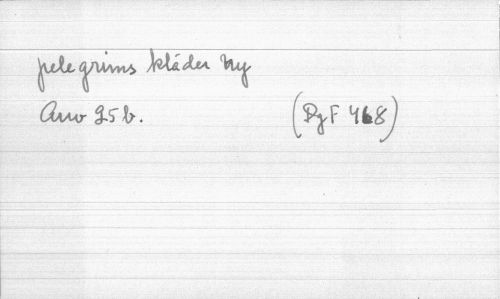 pelegrims kläder ny
Anv 25 b. (PgF 468)